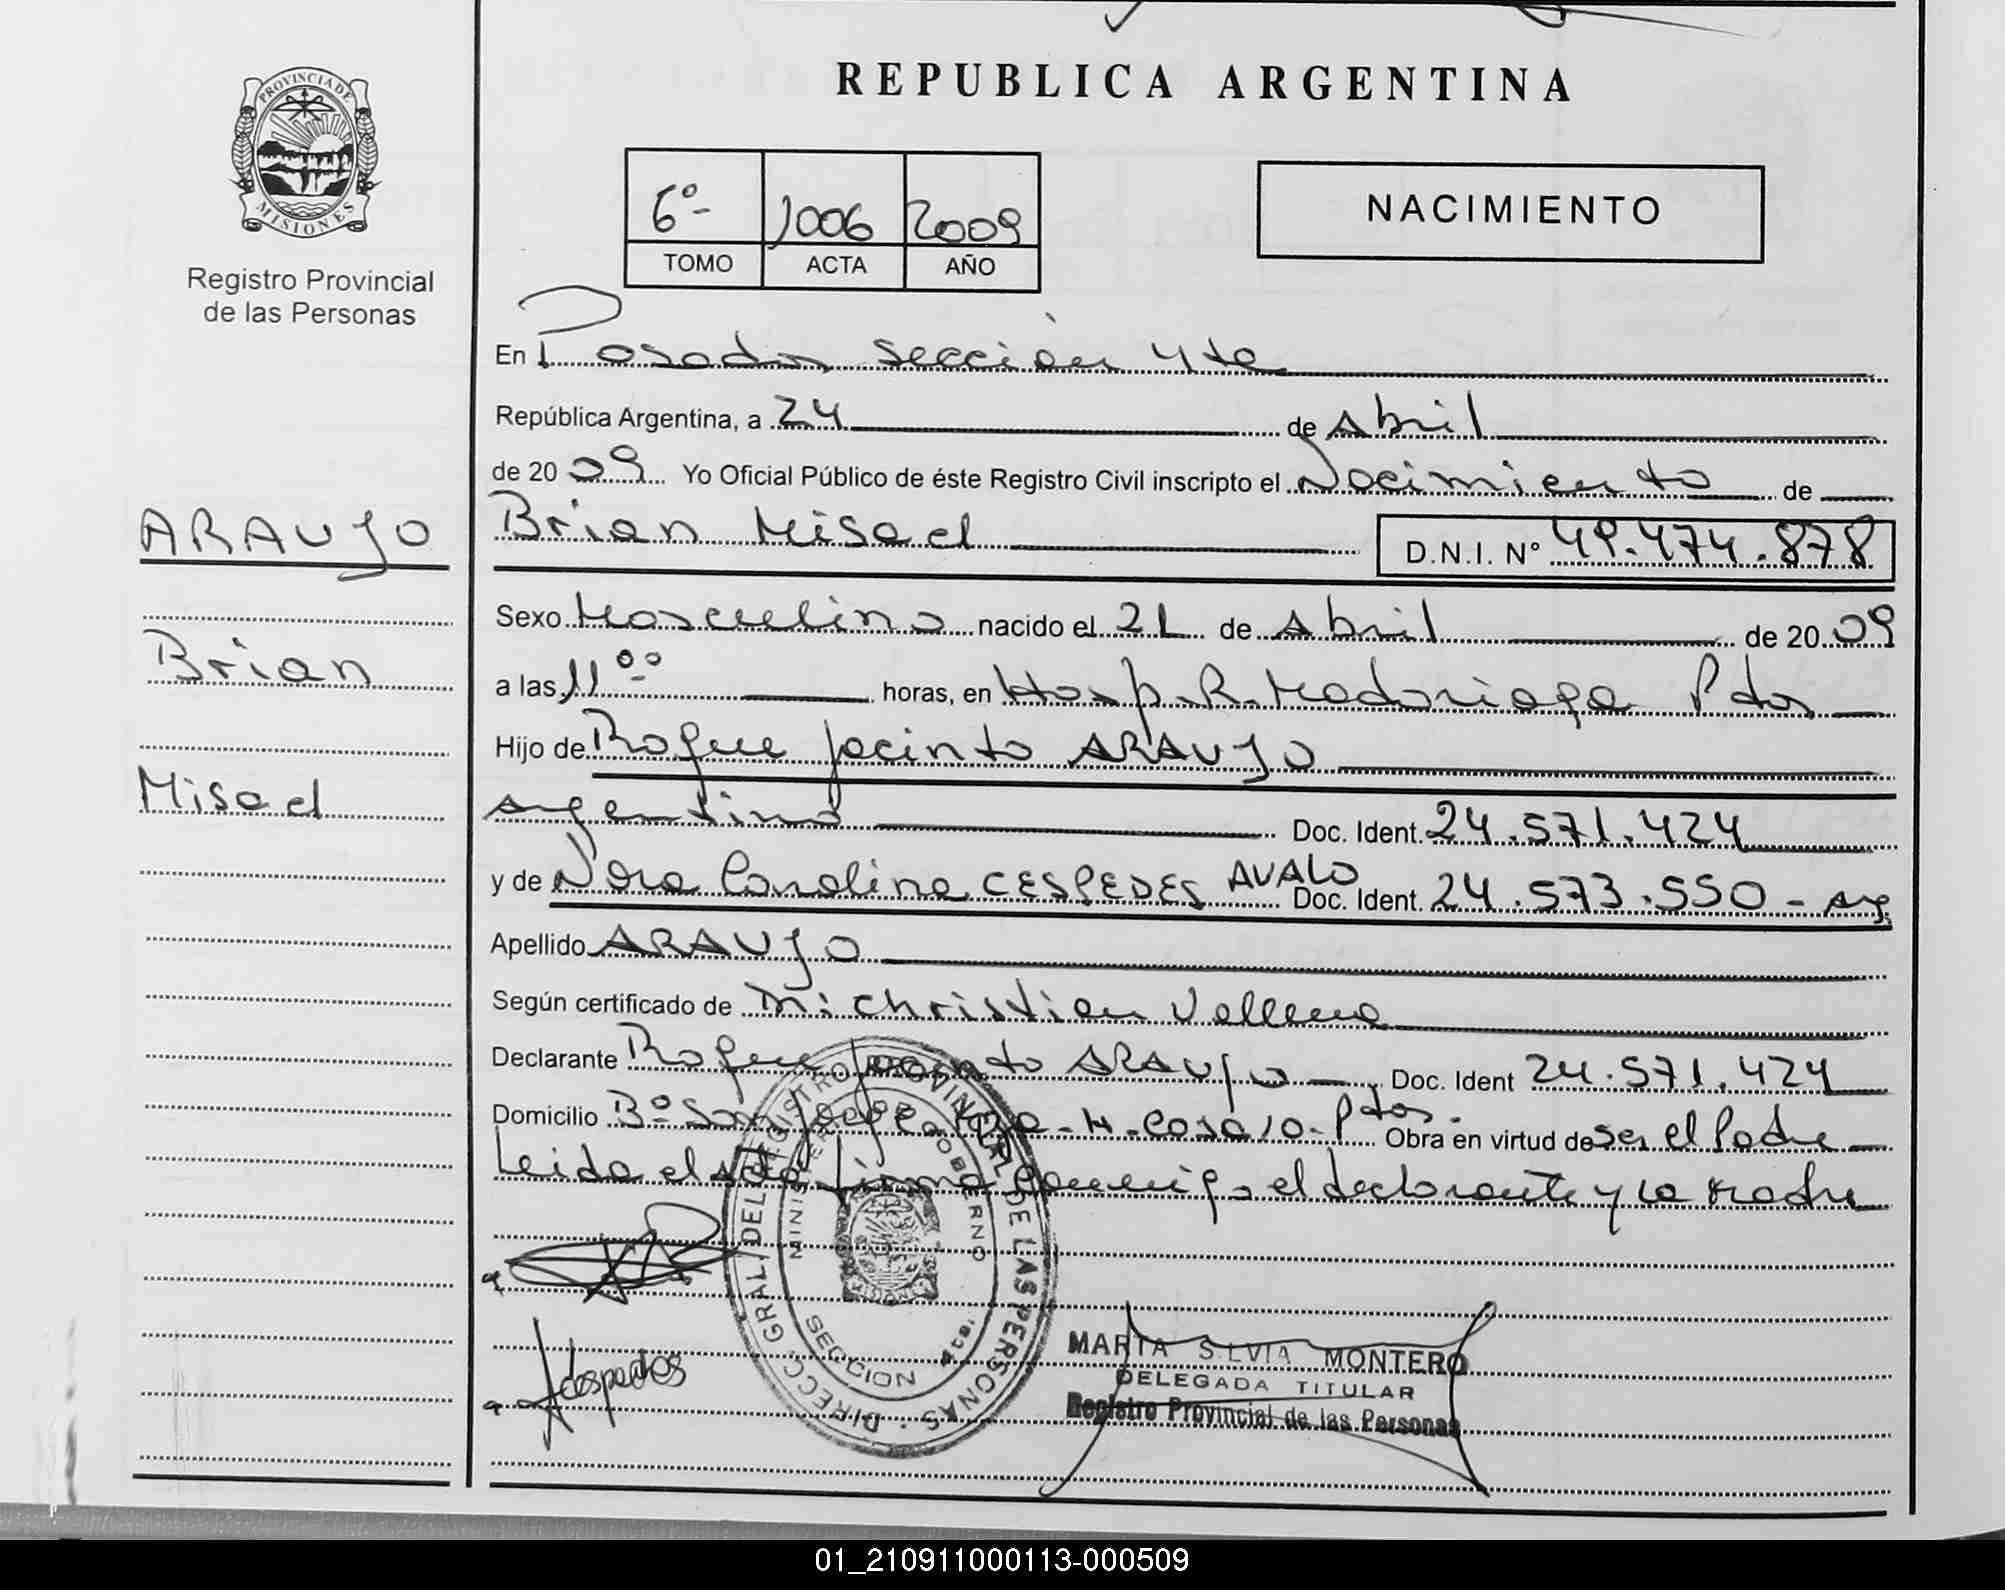 PROVINCIA DE
MISIONES
Registro Provincial
de las Personas
ARAUJO
Brian
Misael
REPUBLICA ARGENTINA
6º- 1006 2009
TOMO ACTA AÑO
NACIMIENTO
En Posadas sección 4ta
República Argentina, a 24 de Abril
de 2009 Yo Oficial Público de éste Registro Civil inscripto el Nacimiento de
Brian Misael D.N.I. Nº 49.474.878
Sexo Masculino nacido el 21 de Abril de 2009
a las 11⁰⁰ horas, en Hosp. R. Madariaga Pdas
Hijo de Roque Jacinto ARAUJO
Argentino Doc. Ident. 24.571.424
y de Nora Carolina CESPEDES AVALO Doc. Ident. 24.573.550 - Arg.
Apellido ARAUJO
Según certificado de Christian
Declarante Roque Jacinto ARAUJO Doc. Ident 24.571.424
Domicilio Bº San Jorge casa 10 - Pdas. Obra en virtud de ser el Padre
Leida el acta firma conmigo el declarante y la madre
DIRECC. GRAL. DEL REGISTRO PROVINCIAL DE LAS PERSONAS
MINISTERIO GOBIERNO
SECCION 4ta.
Cespedes
MARTA SILVIA MONTERO
DELEGADA TITULAR
Registro Provincial de las Personas
01_210911000113-000509